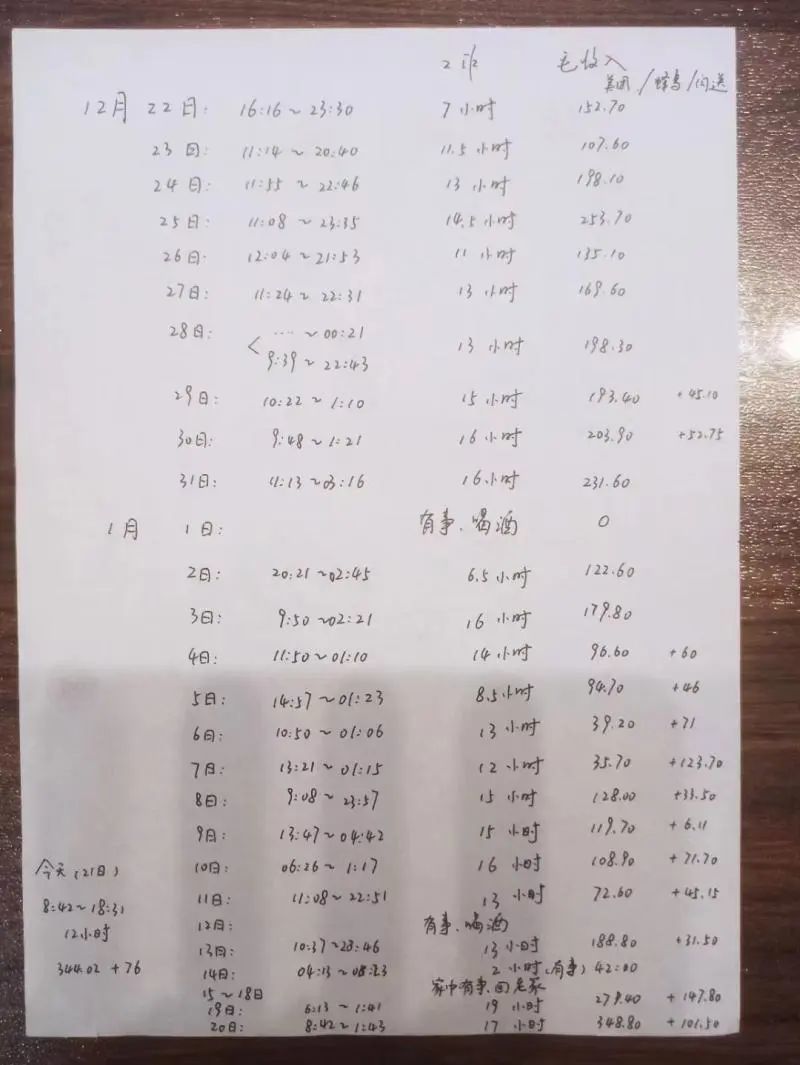 2班 毛收入
美团/蜂鸟/闪送
12月 22日: 16:16~23:30 7小时 152.70
23日: 11:14~20:40 11.5小时 107.60
24日: 11:55~22:46 13小时 198.10
25日: 11:08~23:35 14.5小时 253.70
26日: 12:04~21:53 11小时 135.10
27日: 11:24~22:31 13小时 169.60
28日: < ....~00:21
9:39~22:43 13小时 198.30
29日: 10:22~1:10 15小时 193.40 +45.10
30日: 9:48~1:21 16小时 203.90 +52.75
31日: 11:13~03:16 16小时 231.60
1月 1日: 有事、喝酒 0
2日: 20:21~02:45 6.5小时 122.60
3日: 9:50~02:21 16小时 179.80
4日: 11:50~01:10 14小时 96.60 +60
5日: 14:57~01:23 8.5小时 94.70 +46
6日: 10:50~01:06 13小时 39.20 +71
7日: 13:21~01:15 12小时 35.70 +123.70
8日: 9:08~23:57 15小时 128.00 +33.50
9日: 13:47~04:42 15小时 119.70 +6.11
10日: 06:26~1:17 16小时 108.90 +71.70
11日: 11:08~22:51 13小时 72.60 +45.15
12日: 有事、喝酒
13日: 10:37~23:46 13小时 188.80 +31.50
14日: 04:13~08:23 2小时(有事) 42.00
15~18日 家中有事、回老家
19日: 6:13~1:41 19小时 279.40 +147.80
20日: 8:42~1:43 17小时 348.80 +101.50
今天(21日)
8:42~18:31
12小时
344.02+76